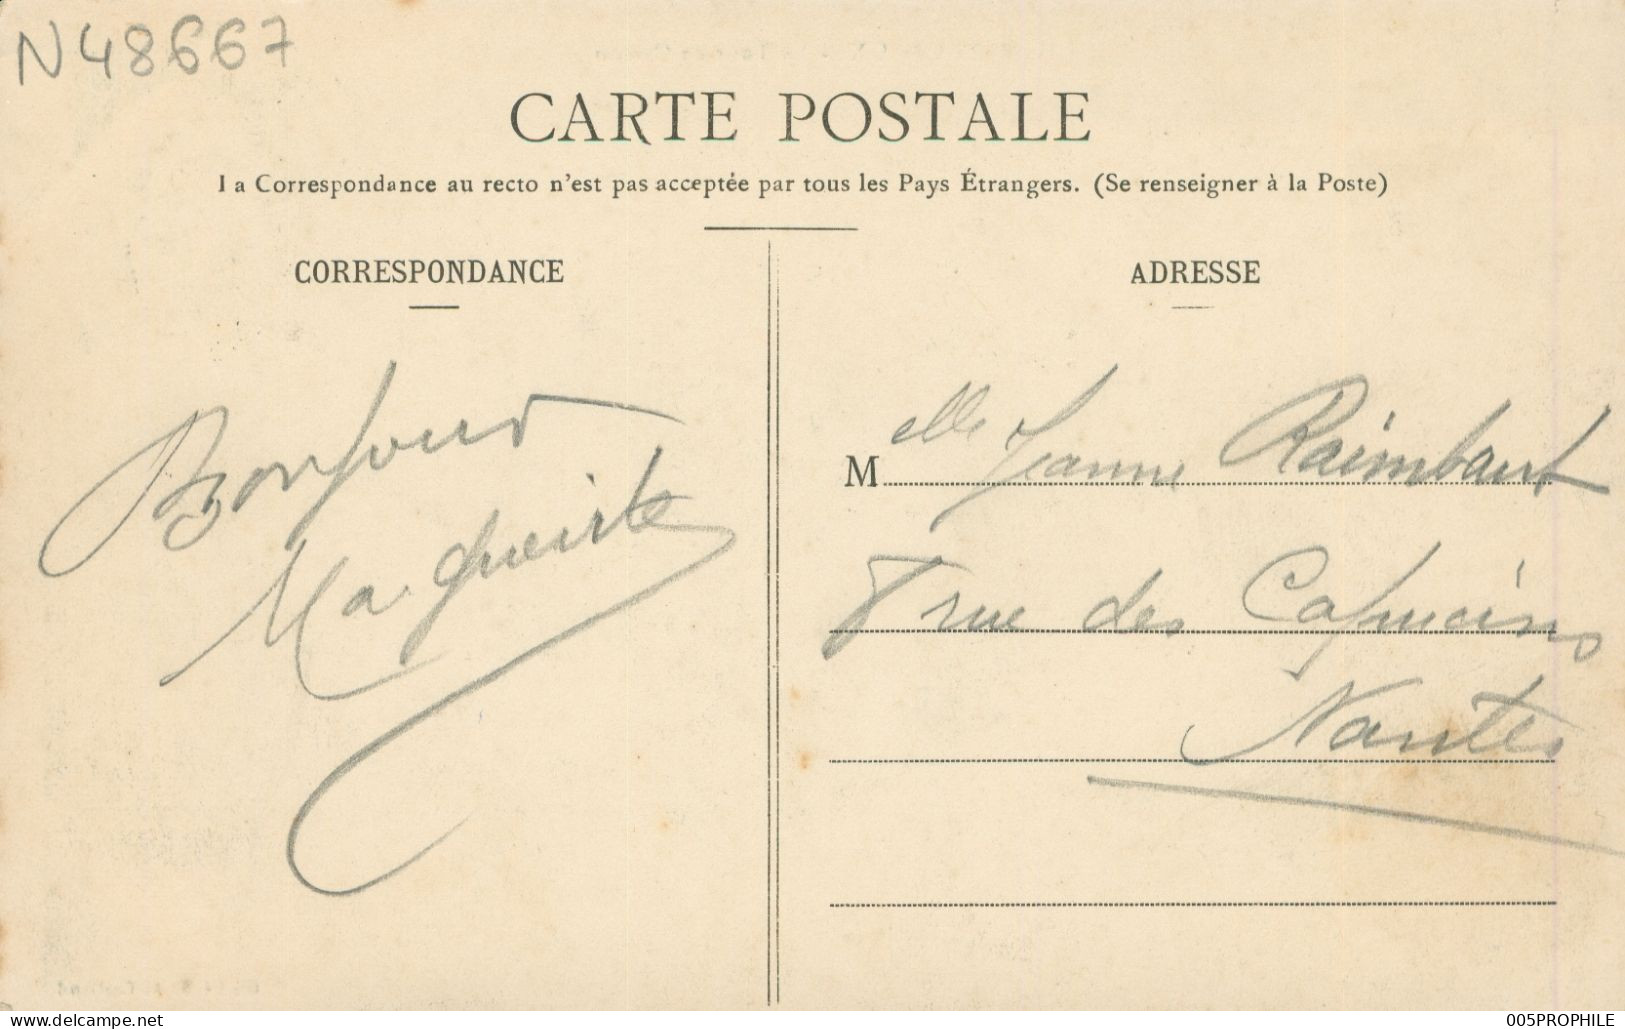 N48667
CARTE POSTALE
La Correspondance au recto n'est pas acceptée par tous les Pays Étrangers. (Se renseigner à la Poste)
CORRESPONDANCE
Bonjour
Marguerite
ADRESSE
Melle Jeanne Raimbault
8 rue des Capucins
Nantes
www.delcampe.net
005PROPHILE